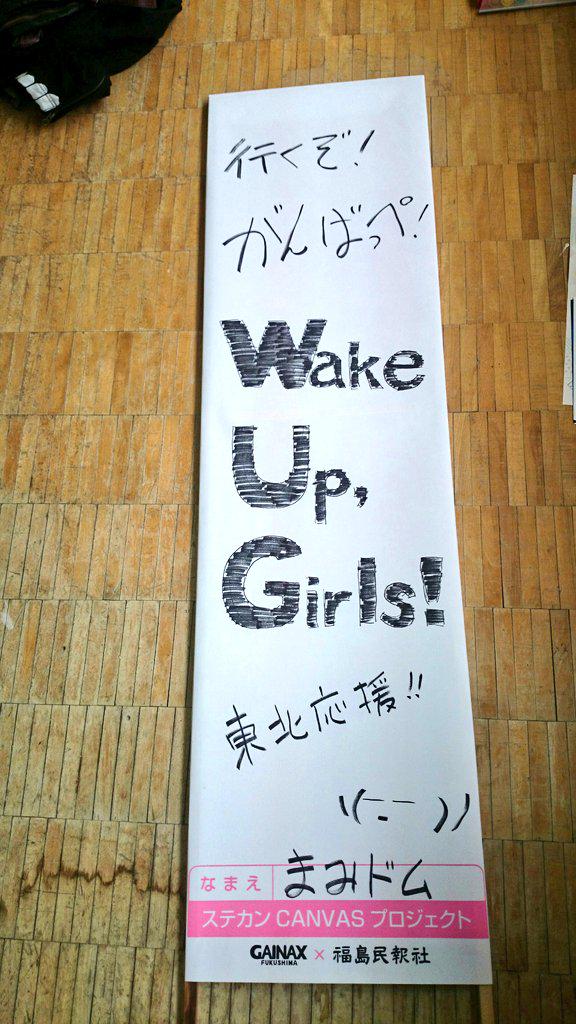 行くぞ!
がんばっぺ!
Wake
Up,
Girls!
東北応援!!
\(ー_ー)ノ
なまえ まみドム
ステカン CANVAS プロジェクト
GAINAX FUKUSHIMA × 福島民報社